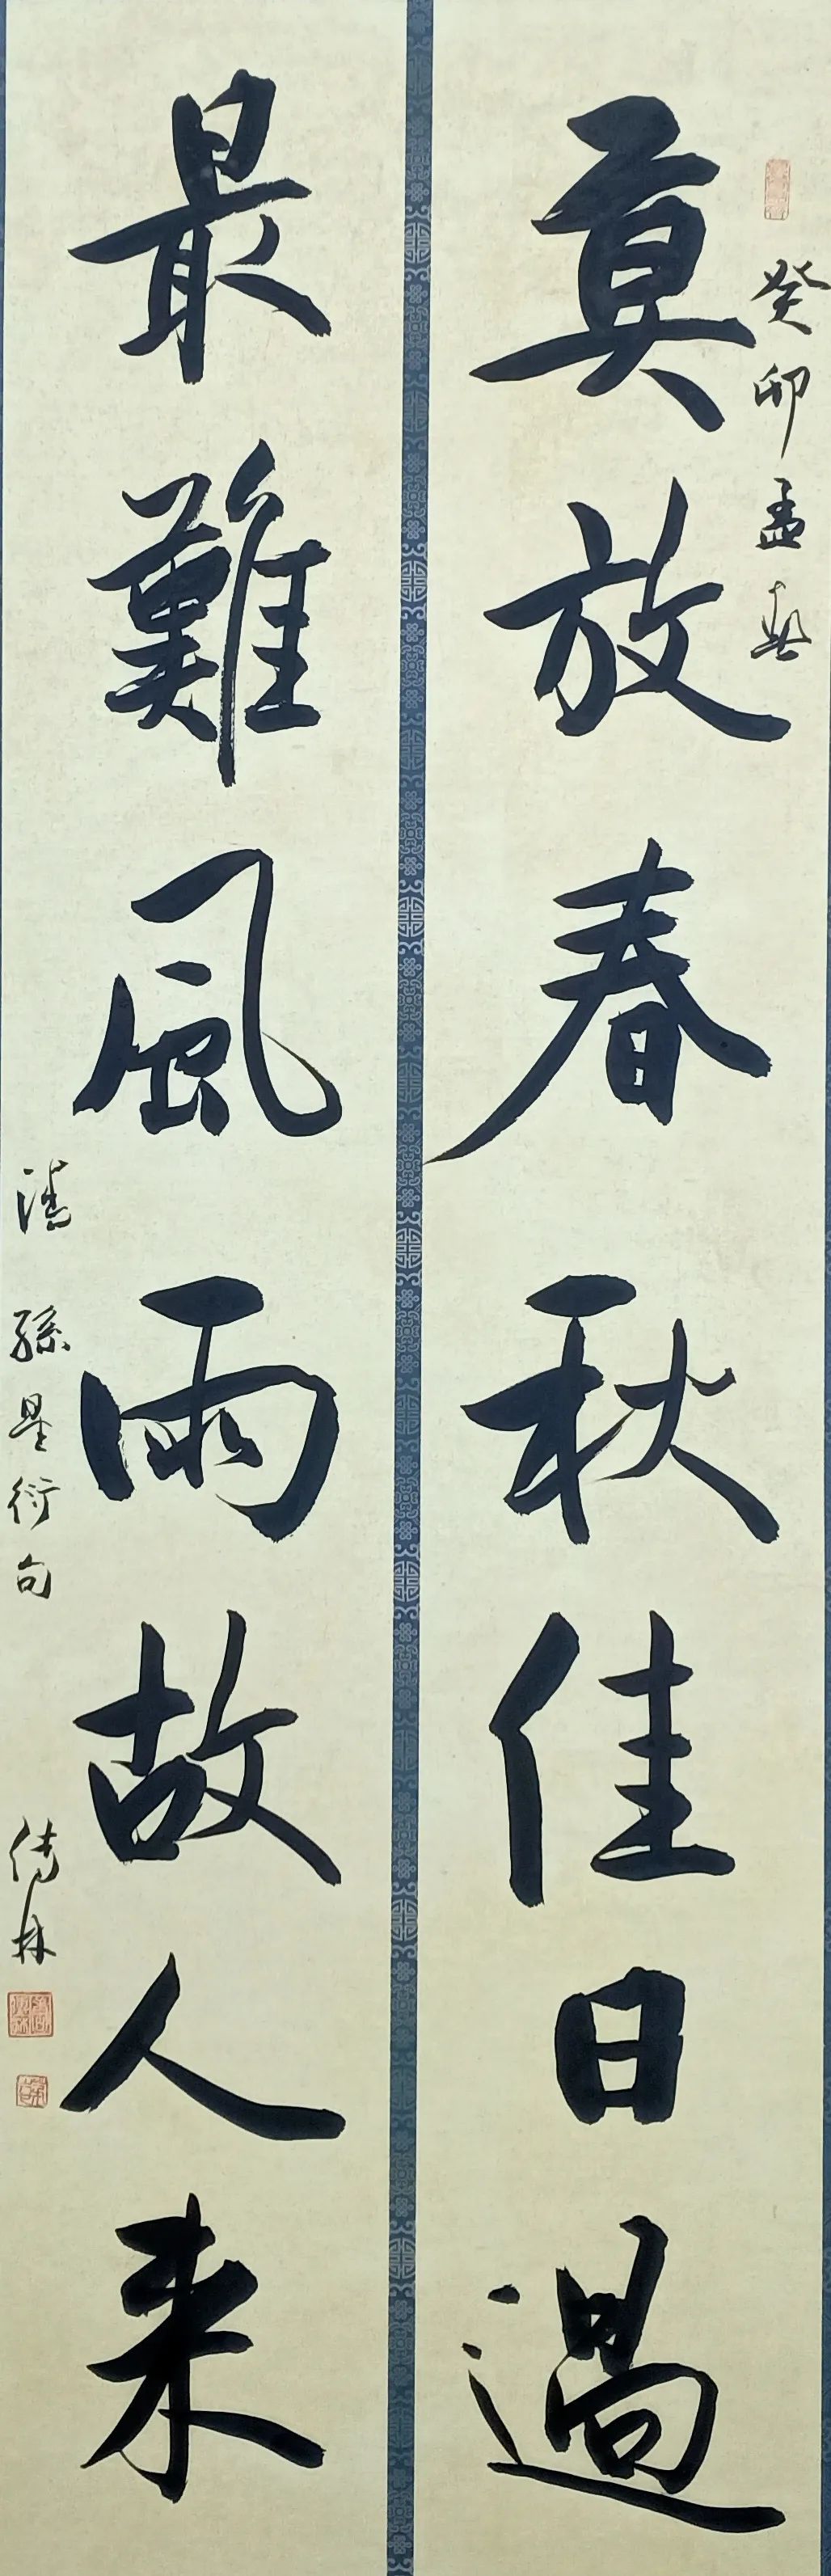 癸卯孟春
莫放春秋佳日過
最難風雨故人来
清 孫星衍句